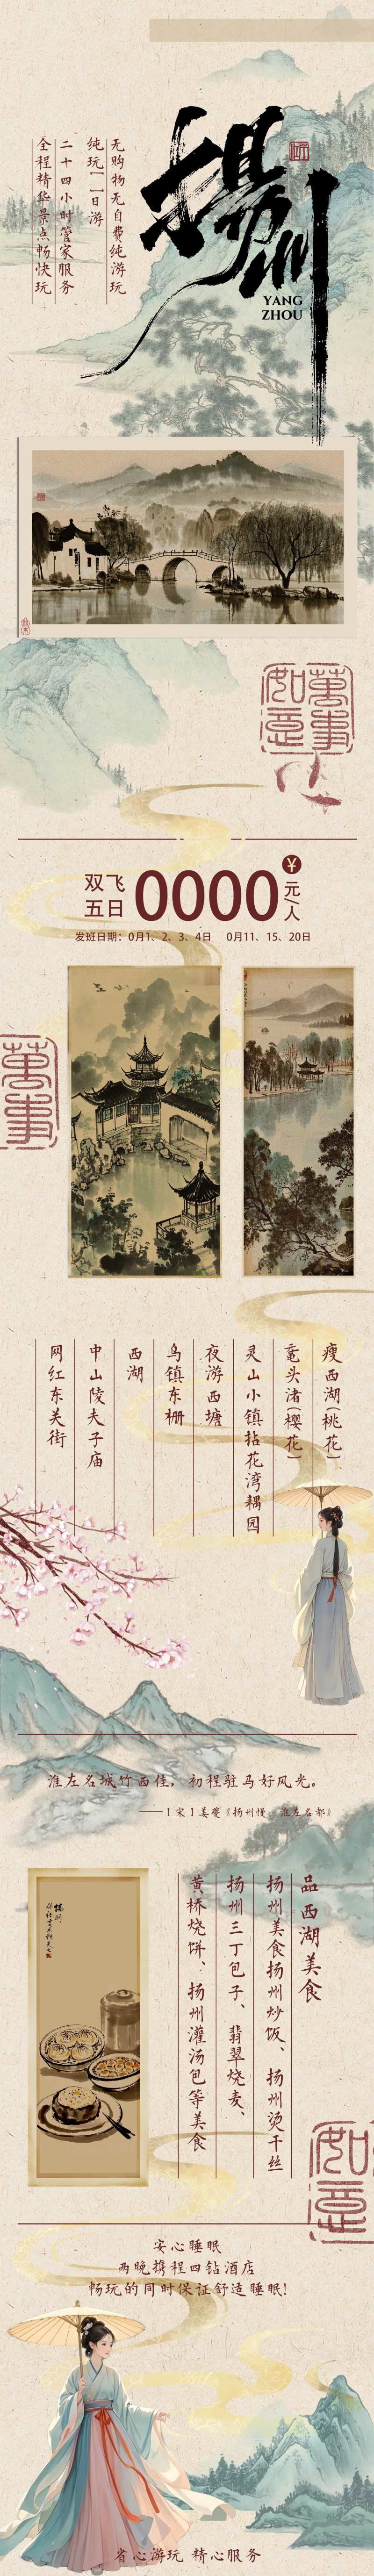 揚州
YANG
ZHOU
无购物无自费纯游玩
纯玩一一日游
二十四小时管家服务
全程精华景点畅快玩
萬事
如意
双飞
五日
0000
¥
元/人
发班日期：0月1、2、3、4日 0月11、15、20日
萬事
瘦西湖(桃花)
鼋头渚(樱花)
灵山小镇拈花湾耦园
夜游西塘
乌镇东栅
西湖
中山陵夫子庙
网红东关街
淮左名城竹西佳，初程驻马好风光。
——【宋】姜夔《扬州慢·淮左名都》
品西湖美食
扬州美食扬州炒饭、扬州烫干丝
扬州三丁包子、翡翠烧麦、
黄桥烧饼、扬州灌汤包等美食
如意
安心睡眠
两晚携程四钻酒店
畅玩的同时保证舒适睡眠!
省心游玩 精心服务